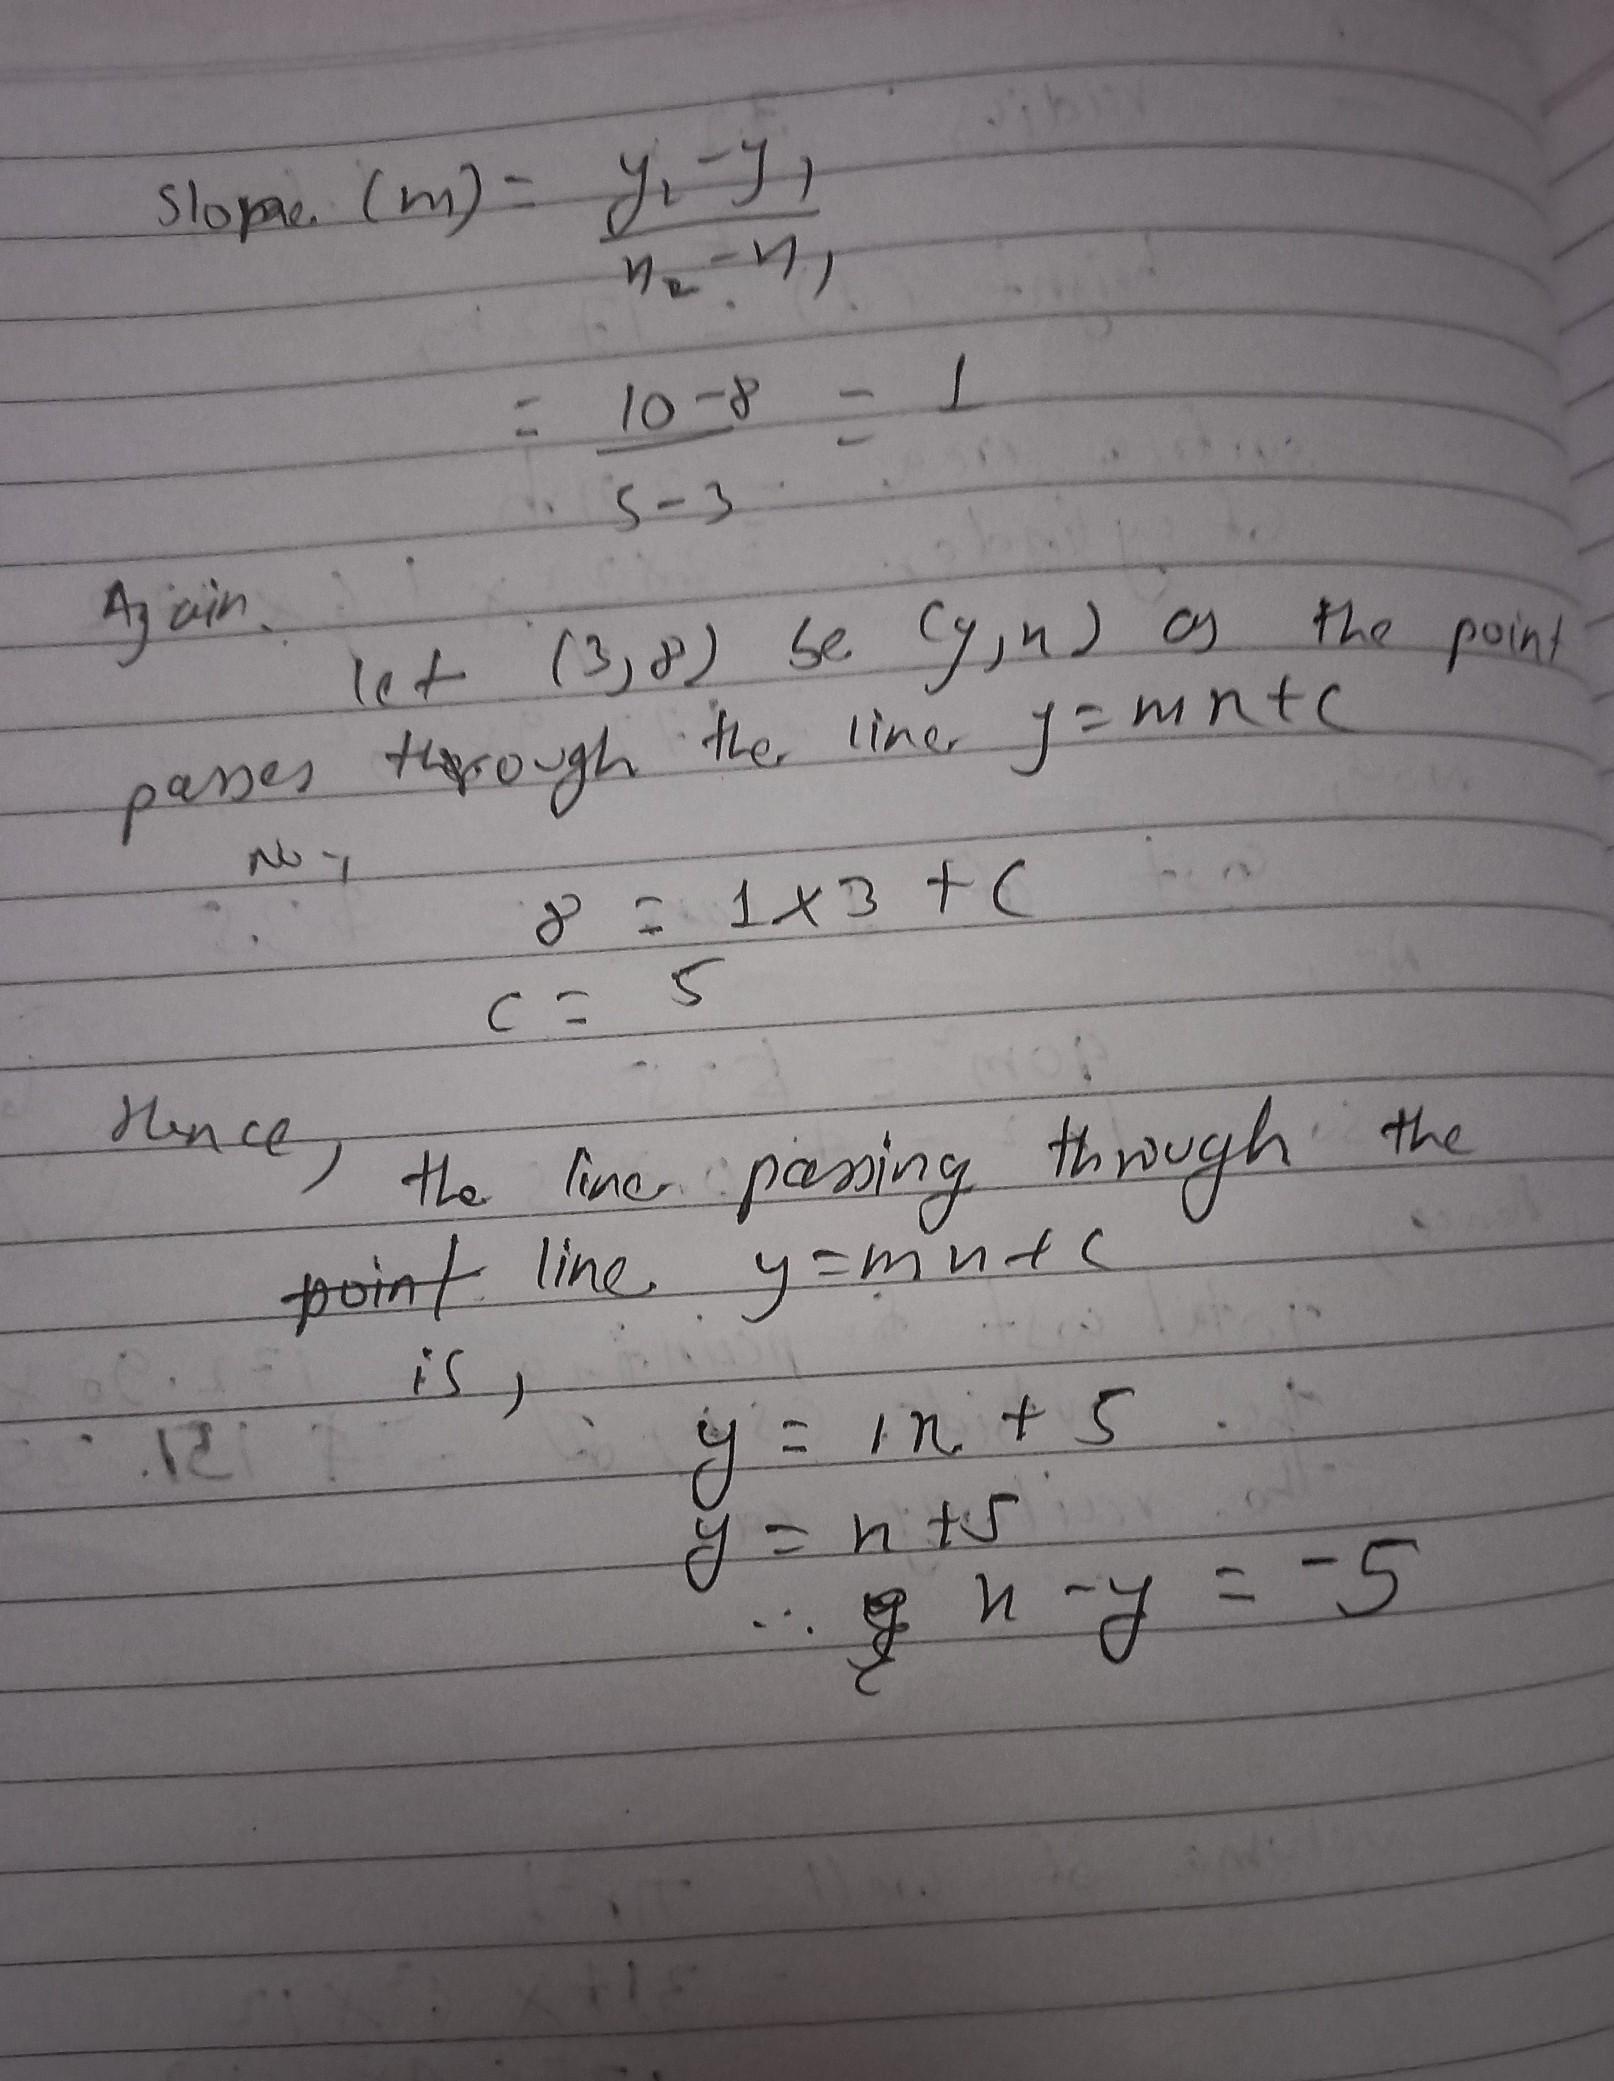 Slope (m) = y₂ - y₁ / x₂ - x₁
= 10 - 8 / 5 - 3 = 1
Again,
let (3,8) be (y,x) as the point
passes through the line y = mx + c
8 = 1 × 3 + c
c = 5
Hence,
the line passing through the
point line y = mx + c
is,
y = 1x + 5
y = x + 5
∴ x - y = -5